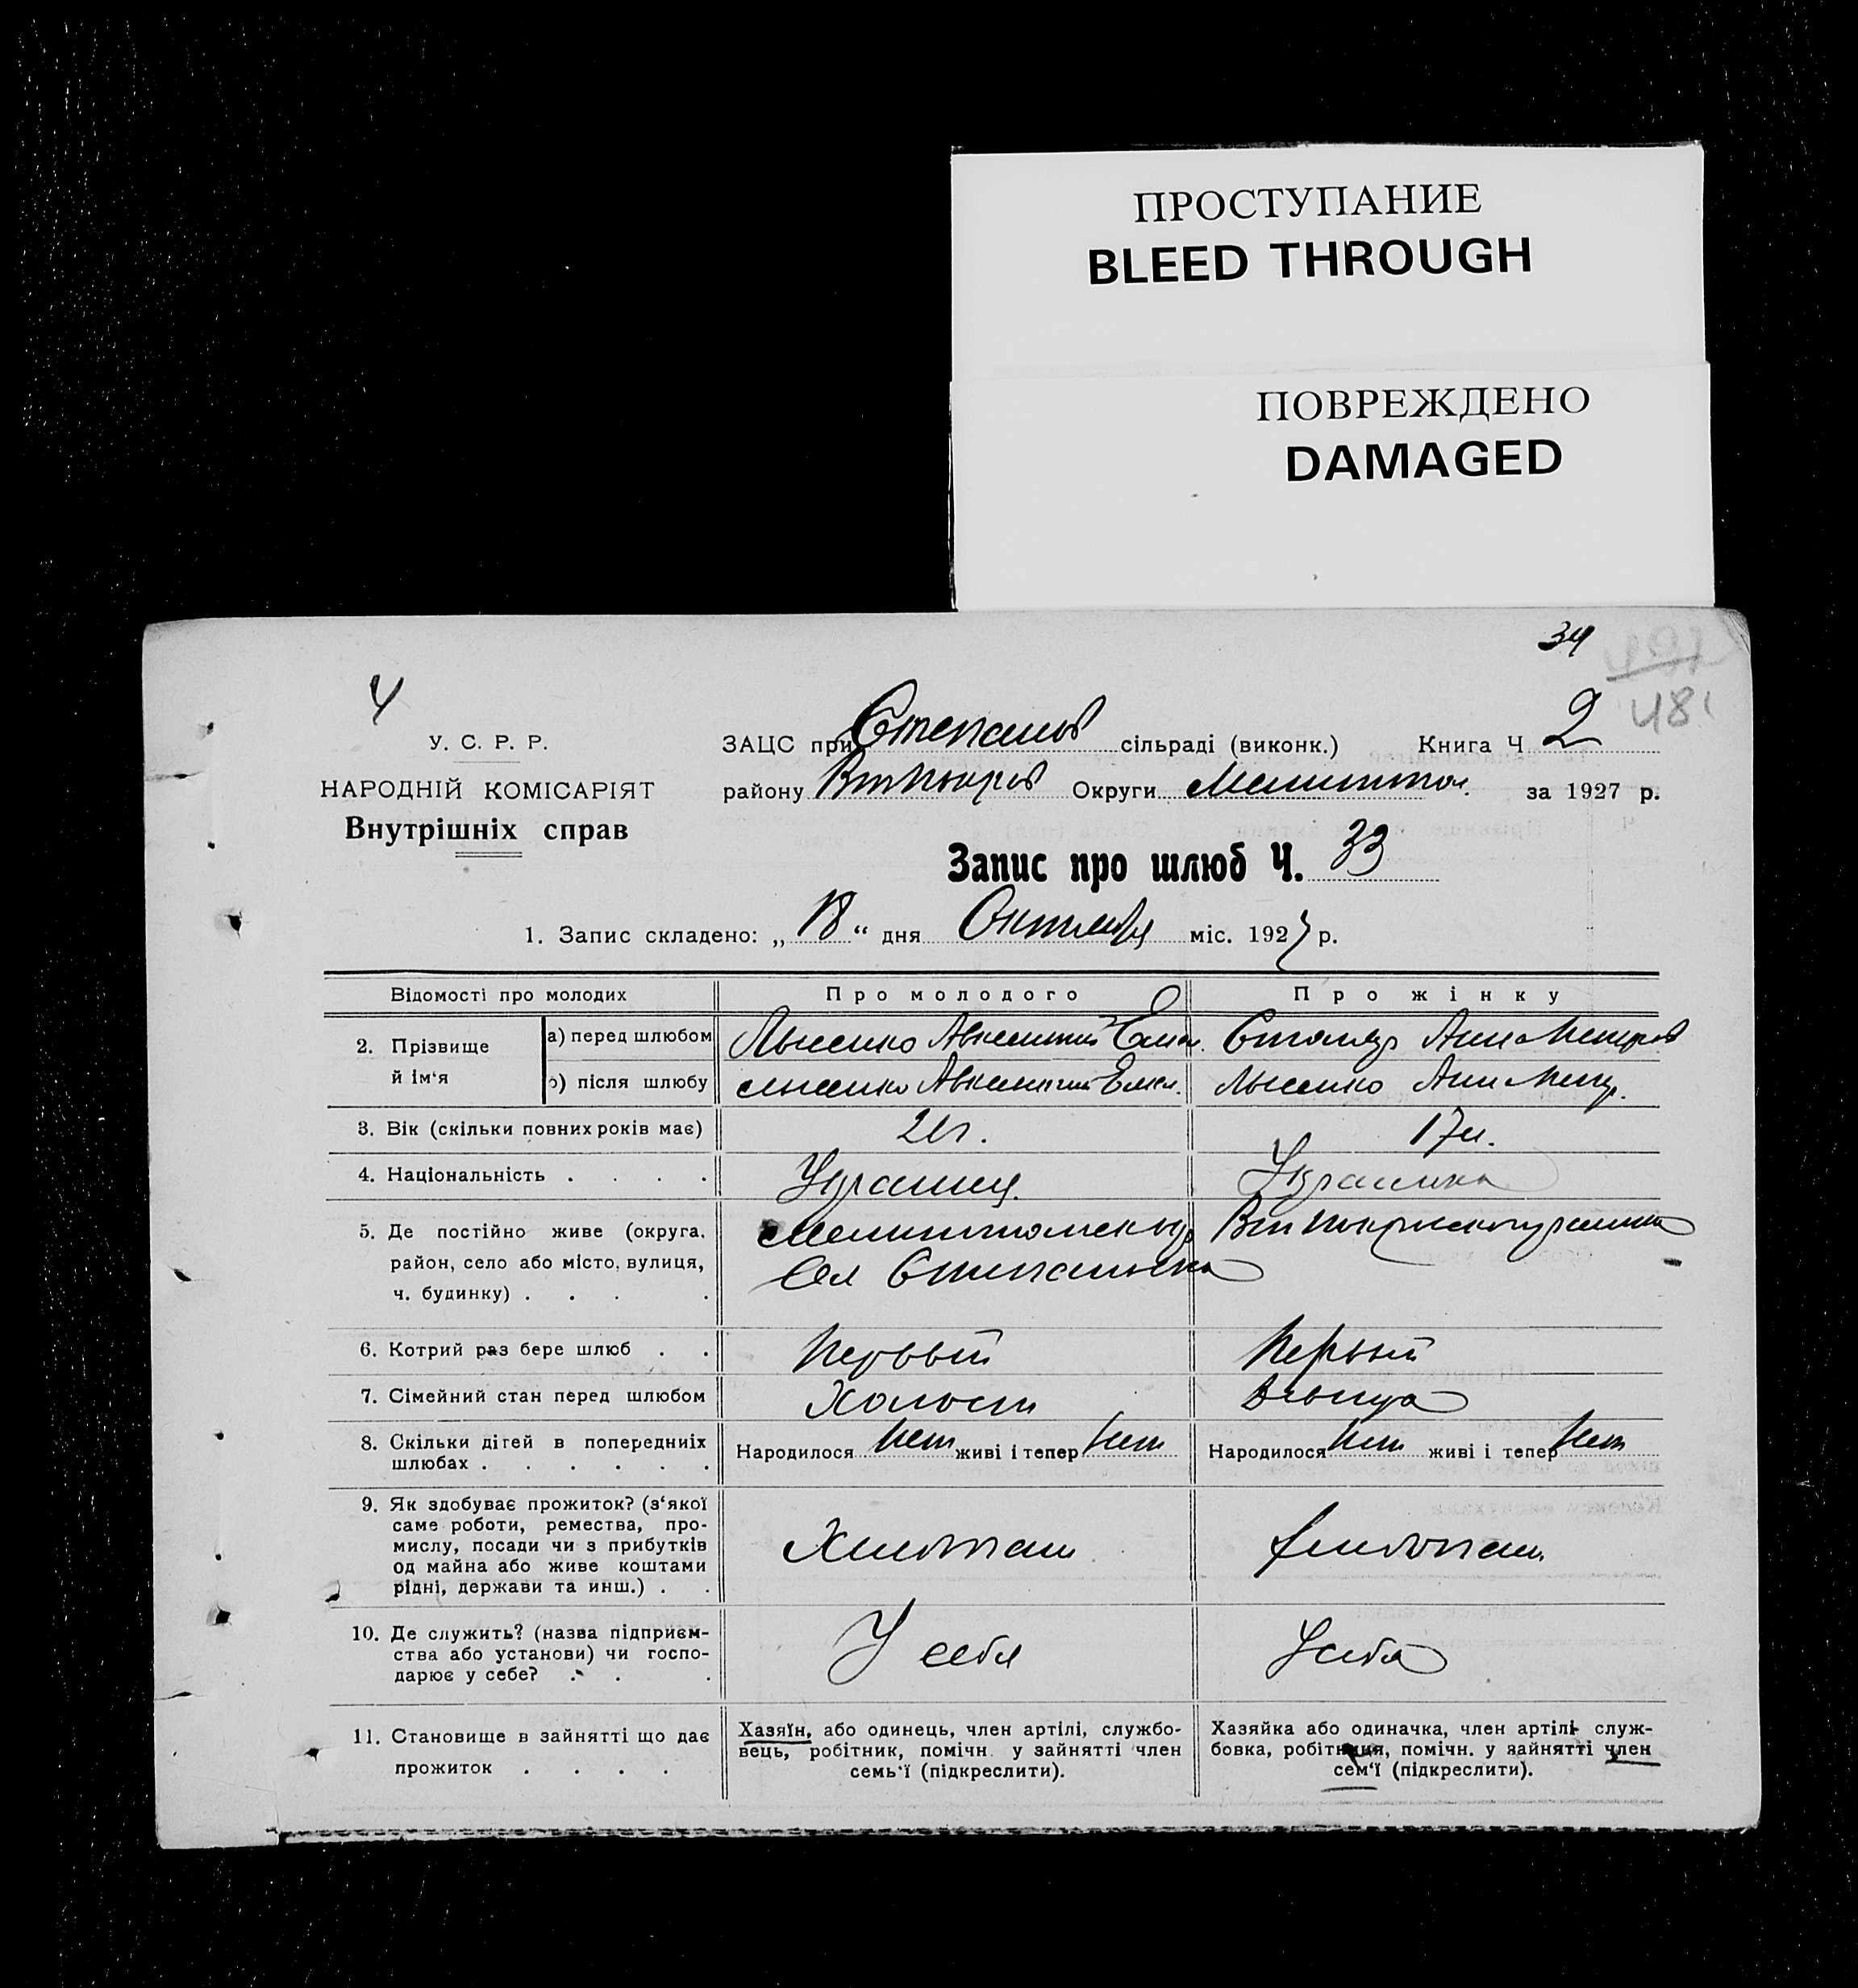 ПРОСТУПАНИЕ
BLEED THROUGH
ПОВРЕЖДЕНО
DAMAGED
34
481
4
У. С. Р. Р.
НАРОДНІЙ КОМІСАРІЯТ
Внутрішніх справ
ЗАЦС при Степанов сільраді (виконк.) Книга Ч 2
району Втпокров Округи Мелитопол. за 1927 р.
Запис про шлюб Ч. 33
1. Запис складено: „ 18 “ дня Октября міс. 1927 р.
Відомості про молодих Про молодого Про жінку
2. Прізвище й ім‘я
а) перед шлюбом Лысенко Авксентий Емел. Столяр Анна Петров
б) після шлюбу Лысенко Авксентий Емел. Лысенко Анна Петр.
3. Вік (скільки повних років має) 21г. 17л.
4. Національність . . . . Украинец. Украинка
5. Де постійно живе (округа, район, село або місто, вулиця, ч. будинку) . . . .
Мелитопольск окр Втпокровского района
Сел Степановка
6. Котрий раз бере шлюб . . Первый Первый
7. Сімейний стан перед шлюбом Холост Девица
8. Скільки дітей в попередниіх шлюбах . . . . . .
Народилося Нет живі і тепер Нет Народилося Нет живі і тепер Нет
9. Як здобуває прожиток? (з‘якої
саме роботи, ремества, про-
мислу, посади чи з прибутків
од майна або живе коштами
рідні, держави та инш.) . .
Хлебопаш. Хлебопаш.
10. Де служить? (назва підприєм-
ства або установи) чи госпо-
дарює у себе? . . .
У себя У себя
11. Становище в зайнятті що дає
прожиток . . . .
Хазяїн, або одинець, член артілі, службо-
вець, робітник, помічн. у зайнятті член
семь‘ї (підкреслити).
Хазяйка або одиначка, член артілі служ-
бовка, робітниця, помічн. у зайнятті член
сем‘ї (підкреслити).